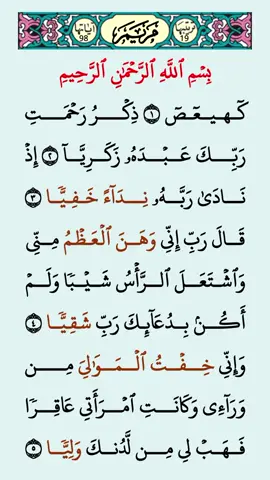 ترتيبها 19 مريم آياتها 98
بِسْمِ اللَّهِ الرَّحْمَٰنِ الرَّحِيمِ
كٓهيعٓصٓ ١ ذِكْرُ رَحْمَتِ
رَبِّكَ عَبْدَهُۥ زَكَرِيَّآ ٢ إِذْ
نَادَىٰ رَبَّهُۥ نِدَآءً خَفِيًّا ٣
قَالَ رَبِّ إِنِّي وَهَنَ الْعَظْمُ مِنِّي
وَاشْتَعَلَ الرَّأْسُ شَيْبًا وَلَمْ
أَكُنۢ بِدُعَآئِكَ رَبِّ شَقِيًّا ٤
وَإِنِّي خِفْتُ الْمَوَٰلِيَ مِن
وَرَآءِى وَكَانَتِ امْرَأَتِي عَاقِرًا
فَهَبْ لِي مِن لَّدُنكَ وَلِيًّا ٥